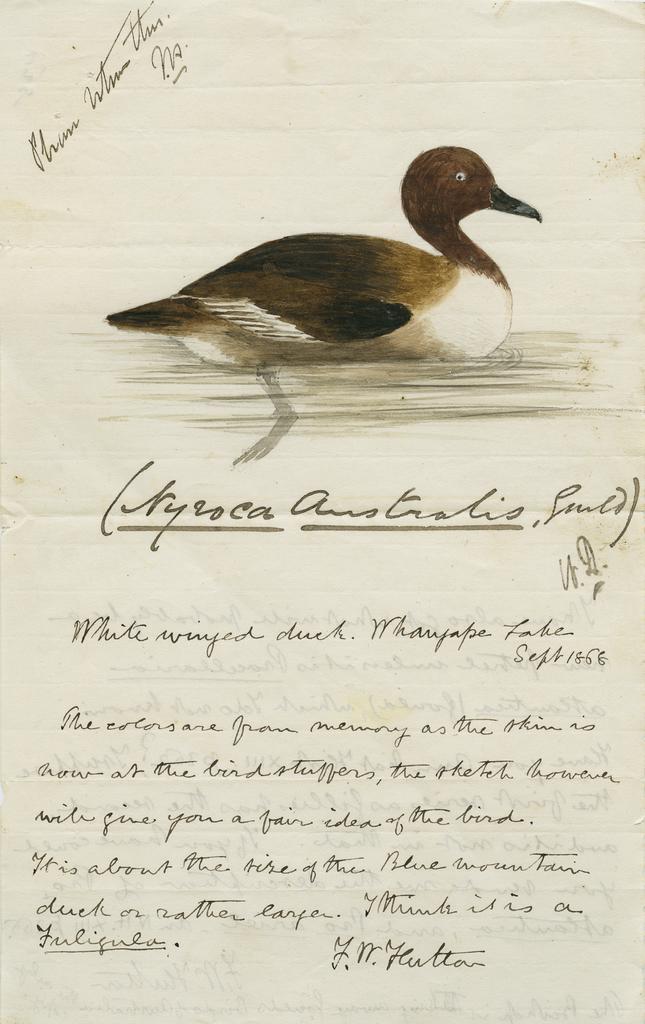 Please return this.
(Nyroca Australis, Gould)
W. B.
White winged duck. Whangape Lake
Sept 1868
The colors are from memory as the skin is
now at the bird stuffers, the sketch however
will give you a fair idea of the bird.
It is about the size of the Blue mountain
duck or rather larger. I think it is a
Fuligula.
F. W. Hutton